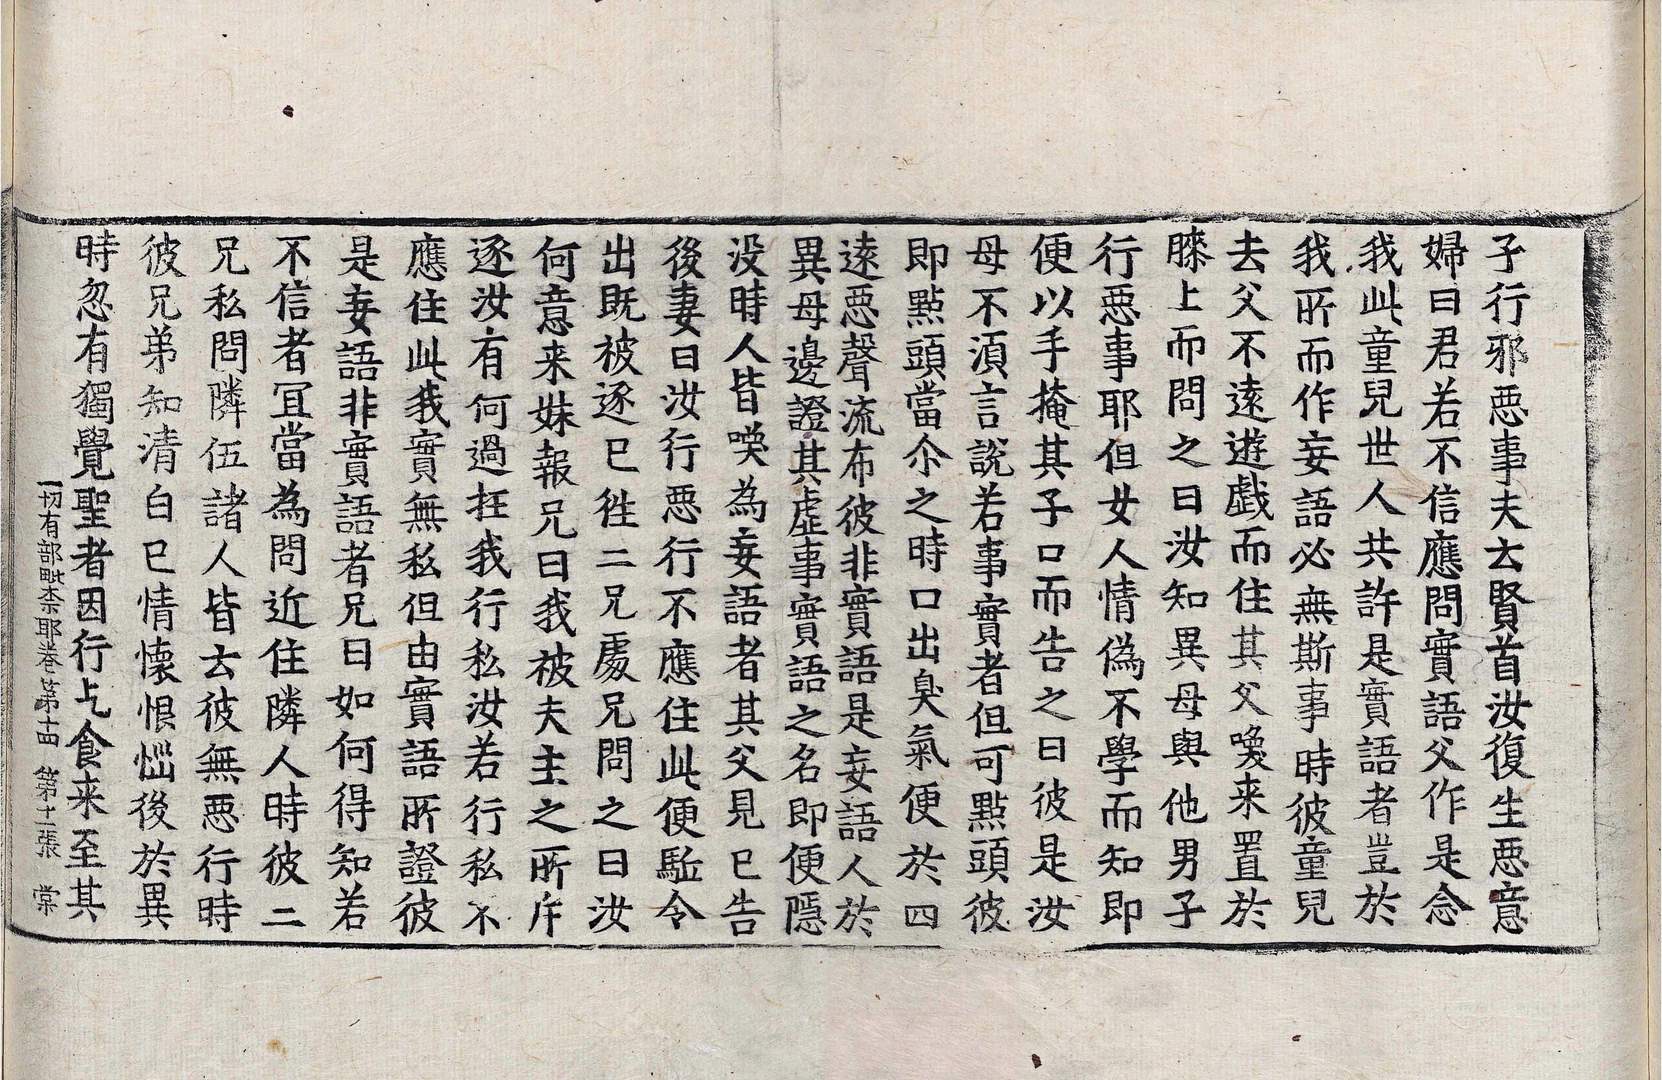 子行邪惡事夫去賢首汝復生惡意
婦曰君若不信應問實語父作是念
我此童兒世人共許是實語者豈於
我所而作妄語必無斯事時彼童兒
去父不遠遊戲而住其父喚来置於
膝上而問之曰汝知異母與他男子
行惡事耶但女人情偽不學而知即
便以手掩其子口而告之曰彼是汝
母不湏言說若事實者但可點頭彼
即點頭當尒之時口出臭氣便於四
遠惡聲流布彼非實語是妄語人於
異母邊證其虛事實語之名即便隱
没時人皆喚為妄語者其父見已告
後妻曰汝行惡行不應住此便駈令
出既被逐已徃二兄處兄問之曰汝
何意来妹報兄曰我被夫主之所斥
逐汝有何過抂我行私汝若行私不
應住此我實無私但由實語所證彼
是妄語非實語者兄曰如何得知若
不信者冝當為問近住隣人時彼二
兄私問隣伍諸人皆去彼無惡行時
彼兄弟知清白已情懷恨惱後於異
時忽有獨覺聖者因行乞食来至其
一切有部毗柰耶卷第十四 第十一張 棠